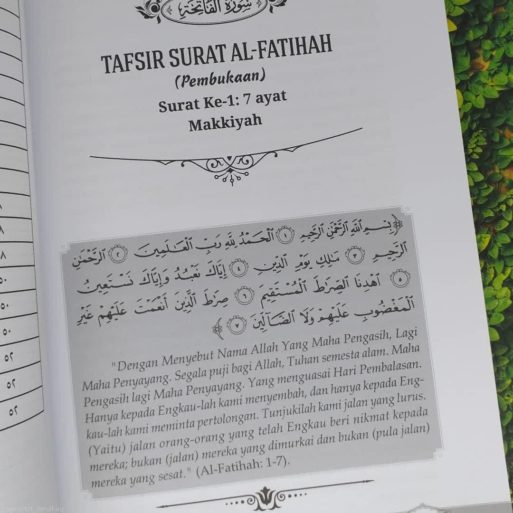 سُورَةُ الْفَاتِحَةِ
TAFSIR SURAT AL-FATIHAH
(Pembukaan)
Surat Ke-1: 7 ayat
Makkiyah
﴿ بِسْمِ ٱللَّهِ ٱلرَّحْمَٰنِ ٱلرَّحِيمِ ١ ٱلْحَمْدُ لِلَّهِ رَبِّ ٱلْعَٰلَمِينَ ٢ ٱلرَّحْمَٰنِ
ٱلرَّحِيمِ ٣ مَٰلِكِ يَوْمِ ٱلدِّينِ ٤ إِيَّاكَ نَعْبُدُ وَإِيَّاكَ نَسْتَعِينُ
٥ ٱهْدِنَا ٱلصِّرَٰطَ ٱلْمُسْتَقِيمَ ٦ صِرَٰطَ ٱلَّذِينَ أَنْعَمْتَ عَلَيْهِمْ غَيْرِ
ٱلْمَغْضُوبِ عَلَيْهِمْ وَلَا ٱلضَّآلِّينَ ٧ ﴾
"Dengan Menyebut Nama Allah Yang Maha Pengasih, Lagi
Maha Penyayang. Segala puji bagi Allah, Tuhan semesta alam. Maha
Pengasih lagi Maha Penyayang. Yang menguasai Hari Pembalasan.
Hanya kepada Engkau-lah kami menyembah, dan hanya kepada Eng-
kau-lah kami meminta pertolongan. Tunjukilah kami jalan yang lurus.
(Yaitu) jalan orang-orang yang telah Engkau beri nikmat kepada
mereka; bukan (jalan) mereka yang dimurkai dan bukan (pula jalan)
mereka yang sesat." (Al-Fatihah: 1-7).
٥٠
٥٠
٥٢
٥٢